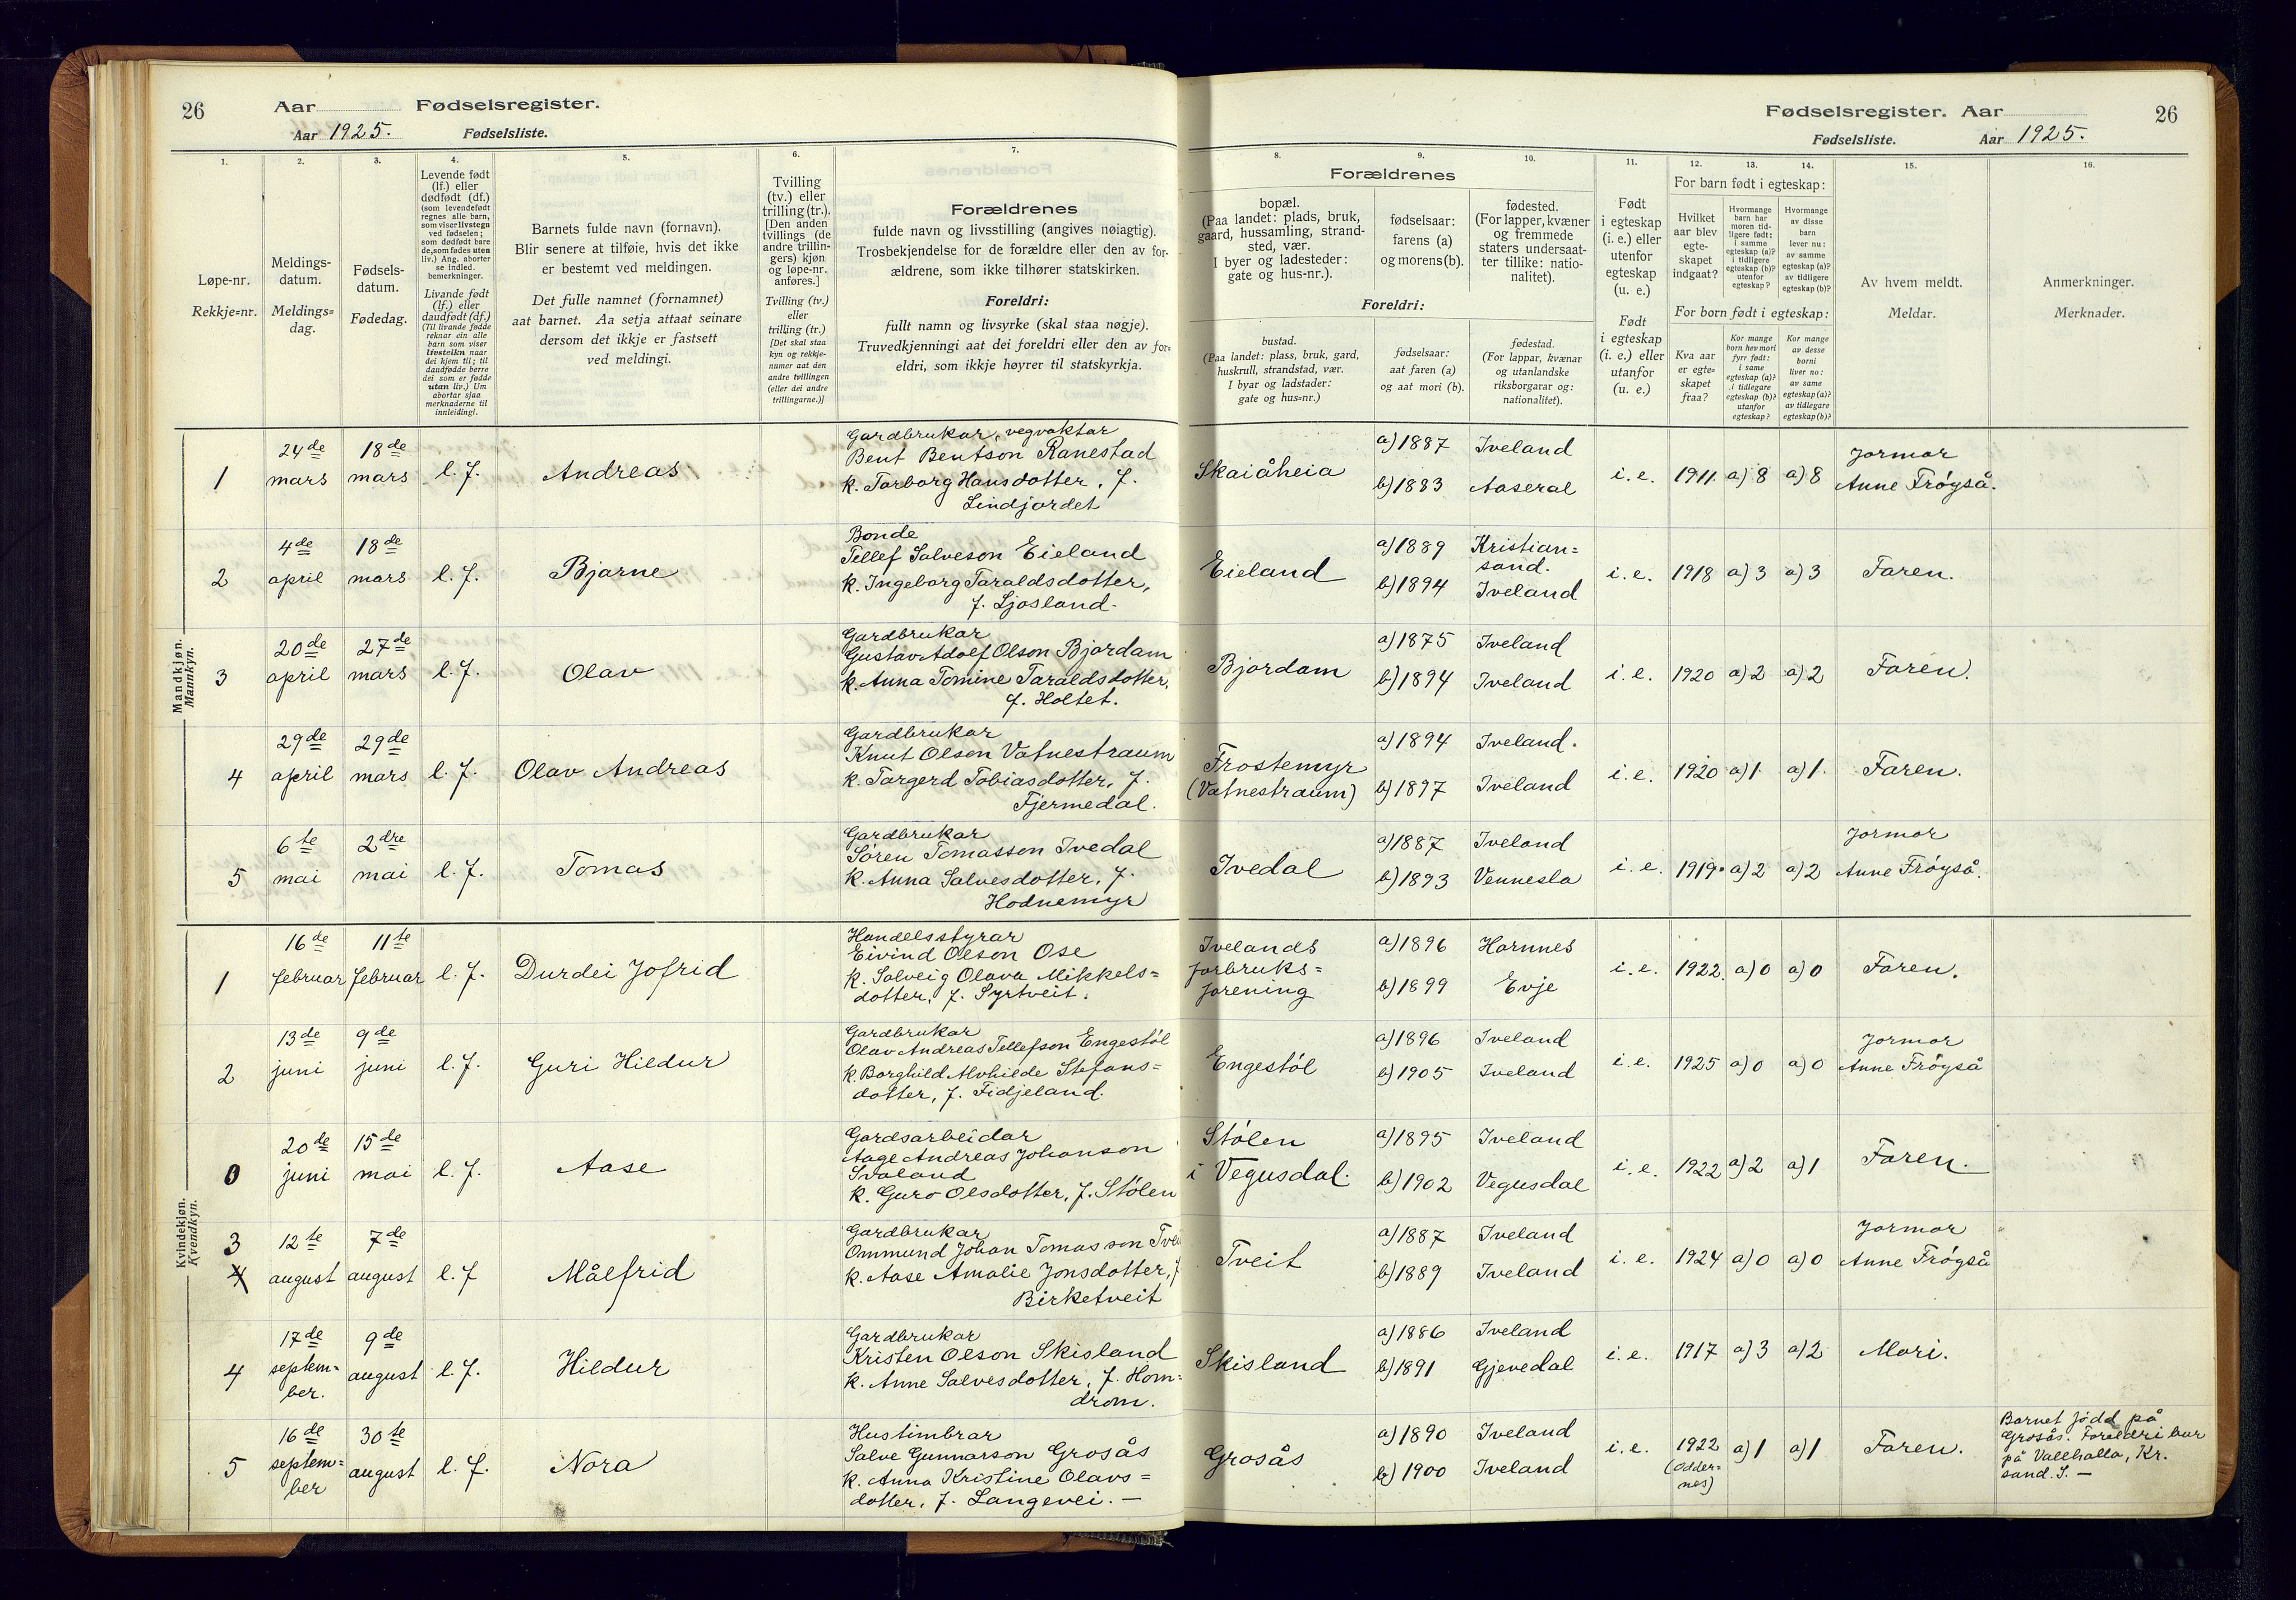 26
Aar
Fødselsregister.
Aar 1925.
Fødselsliste.
Fødselsregister. Aar
26
Fødselsliste.
Aar 1925.
1.
Løpe-nr.
Rekkje=nr.
2.
Meldings-
datum.
Meldings=
dag.
3.
Fødsels-
datum.
Fødedag.
4.
Levende født
(lf.) eller
dødfødt (df.)
(som levendefødt
regnes alle barn,
som viser livstegn
ved fødselen;
som dødfødt bare
de, som fødes uten
liv.) Ang. aborter
se indled.
bemerkninger.
Livande født
(lf.) eller
daudfødt (df.)
(Til livande fødde
reknar ein alle
barn som viser
livsteikn naar
dei kjem til; til
daudfødde berre
dei som er fødde
utan liv.) Um
abortar sjaa
merknaderne til
innleidingi.
5.
Barnets fulde navn (fornavn).
Blir senere at tilføie, hvis det ikke
er bestemt ved meldingen.
Det fulle namnet (fornamnet)
aat barnet. Aa setja attaat seinare
dersom det ikkje er fastsett
ved meldingi.
6.
Tvilling
(tv.) eller
trilling (tr.).
[Den anden
tvillings (de
andre trillin-
gers) kjøn
og løpe-nr.
anføres.]
Tvilling (tv.)
eller
trilling (tr.)
[Det skal staa
kyn og rekkje-
numer aat den
andre tvillingen
(eller dei andre
trillingarne.)]
7.
Forældrenes
fulde navn og livsstilling (angives nøiagtig).
Trosbekjendelse for de forældre eller den av for-
ældrene, som ikke tilhører statskirken.
Foreldri:
fullt namn og livsyrke (skal staa nøgje).
Truvedkjenningi aat dei foreldri eller den av for=
eldri, som ikkje høyrer til statskyrkja.
Forældrenes
8.
bopæl.
(Paa landet: plads, bruk,
gaard, hussamling, strand-
sted, vær.
I byer og ladesteder:
gate og hus-nr.).
Foreldri:
bustad.
(Paa landet: plass, bruk, gard,
huskrull, strandstad, vær.
I byar og ladstader:
gate og hus=nr.)
9.
fødselsaar:
farens (a)
og morens (b).
fødselsaar:
aat faren (a)
og aat mori (b).
10.
fødested.
(For lapper, kvæner
og fremmede
staters undersaat-
ter tillike: natio-
nalitet).
fødestad.
(For lappar, kvænar
og utanlandske
riksborgarar og:
nationalitet).
11.
Født
i egteskap
(i. e.) eller
utenfor
egteskap
(u. e.)
Født
i egteskap
(i. e.) eller
utanfor
(u. e.)
For barn født i egteskap:
12.
Hvilket
aar blev
egte-
skapet
indgaat?
13.
Hvormange
barn har
moren tid-
ligere født:
i samme
egteskap (a)?
i tidligere
egteskap (b)?
utenfor
egteskap?
14.
Hvormange
av disse
barn
lever nu:
av samme
egteskap (a)?
av tidligere
egteskap (b)?
For born født i egteskap:
Kva aar
er egte=
skapet
fraa?
Kor mange
born hev mori
fyrr født:
i same
egteskap (a)?
i tidlegare
egteskap (b)?
utanfor
egteskap?
Kor mange
av desse
borni
liver no:
av same
egteskap (a)?
av tidlegare
egteskap (b)?
15.
Av hvem meldt.
Meldar.
16.
Anmerkninger.
Merknader.
Mandkjøn.
Mannkyn.
1
24de mars
18de mars
l. f.
Andreas
Gardbrukar, vegvaktar
Bent Bentson Ranestad
k. Torborg Hansdotter, f.
Lindjordet
Skaiåheia
a) 1887
b) 1883
Iveland
Aaseral
i. e.
1911
a) 8
a) 8
Jormor
Anne Frøyså.
2
4de april
18de mars
l. f.
Bjarne
Bonde
Tellef Salveson Eieland
k. Ingeborg Taraldsdotter,
f. Ljosland.
Eieland
a) 1889
b) 1894
Kristian=
sand.
Iveland
i. e.
1918
a) 3
a) 3
Faren.
3
20de april
27de mars
l. f.
Olav
Gardbrukar
Gustav Adolf Olson Bjordam
k. Anna Tomine Taraldsdotter,
f. Holtet.
Bjordam
a) 1875
b) 1894
Iveland
Iveland
i. e.
1920
a) 2
a) 2
Faren.
4
29de april
29de mars
l. f.
Olav Andreas
Gardbrukar
Knut Olson Vatnestraum
k. Torgerd Tobiasdotter, f.
Fjermedal.
Frostemyr
(Vatnestraum)
a) 1894
b) 1897
Iveland.
Iveland
i. e.
1920
a) 1
a) 1.
Faren.
5
6te mai
2dre mai
l. f.
Tomas
Gardbrukar
Søren Tomasson Ivedal
k. Anna Salvesdotter, f.
Hodnemyr
Ivedal
a) 1887
b) 1893
Iveland
Vennesla
i. e.
1919.
a) 2
a) 2
Jormor
Anne Frøyså.
Kvindekjøn.
Kvendkyn.
1
16de februar
11te februar
l. f.
Durdei Jofrid
Handelsstyrar
Eivind Olson Ose
k. Solveig Olava Mikkels=
dotter, f. Syrtveit.
Ivelands
forbruks=
forening
a) 1896
b) 1899
Hornnes
Evje
i. e.
1922.
a) 0
a) 0
Faren.
2
13de juni
9de juni
l. f.
Guri Hildur
Gardbrukar
Olav Andreas Tellefson Engestøl
k. Borghild Alvhilde Stefans=
dotter, f. Fidjeland.
Engestøl
a) 1896
b) 1905
Iveland
Iveland
i. e.
1925
a) 0
a) 0
Jormor
Anne Frøyså
0
20de juni
15de mai
l. f.
Aase
Gardsarbeidar
Aage Andreas Johanson
Svaland
k. Guro Olsdotter, f. Stølen
Stølen
i Vegusdal.
a) 1895
b) 1902
Iveland
Vegusdal
i. e.
1922
a) 2
a) 1
Faren.
3
4
12te august
7de august
l. f
Målfrid
Gardbrukar
Ommund Johan Tomasson Tvei
k. Aase Amalie Jonsdotter, f
Birketveit
Tveit
a) 1887
b) 1889
Iveland
Iveland
i. e.
1924
a) 0
a) 0
Jormor
Anne Frøyså
4
17de septem=
ber.
9de august
l. f.
Hildur
Gardbrukar
Kristen Olson Skisland
k. Anne Salvesdotter, f. Hom=
drom.
Skisland
a) 1886
b) 1891
Iveland
Gjevedal
i. e.
1917
a) 3
a) 2
Mori.
5
16de septem=
ber
30te august
l. f.
Nora
Hustimbrar
Salve Gunnarson Grosås
k. Anna Kristine Olavs=
dotter, f. Langevei. —
Grosås
a) 1890
b) 1900
Iveland
Iveland
i. e.
1922
(Odder=
nes)
a) 1
a) 1
Faren.
Barnet fødd på
Grosås. Foreldri bur
på Vallhalla, Kr.
sand. S. —